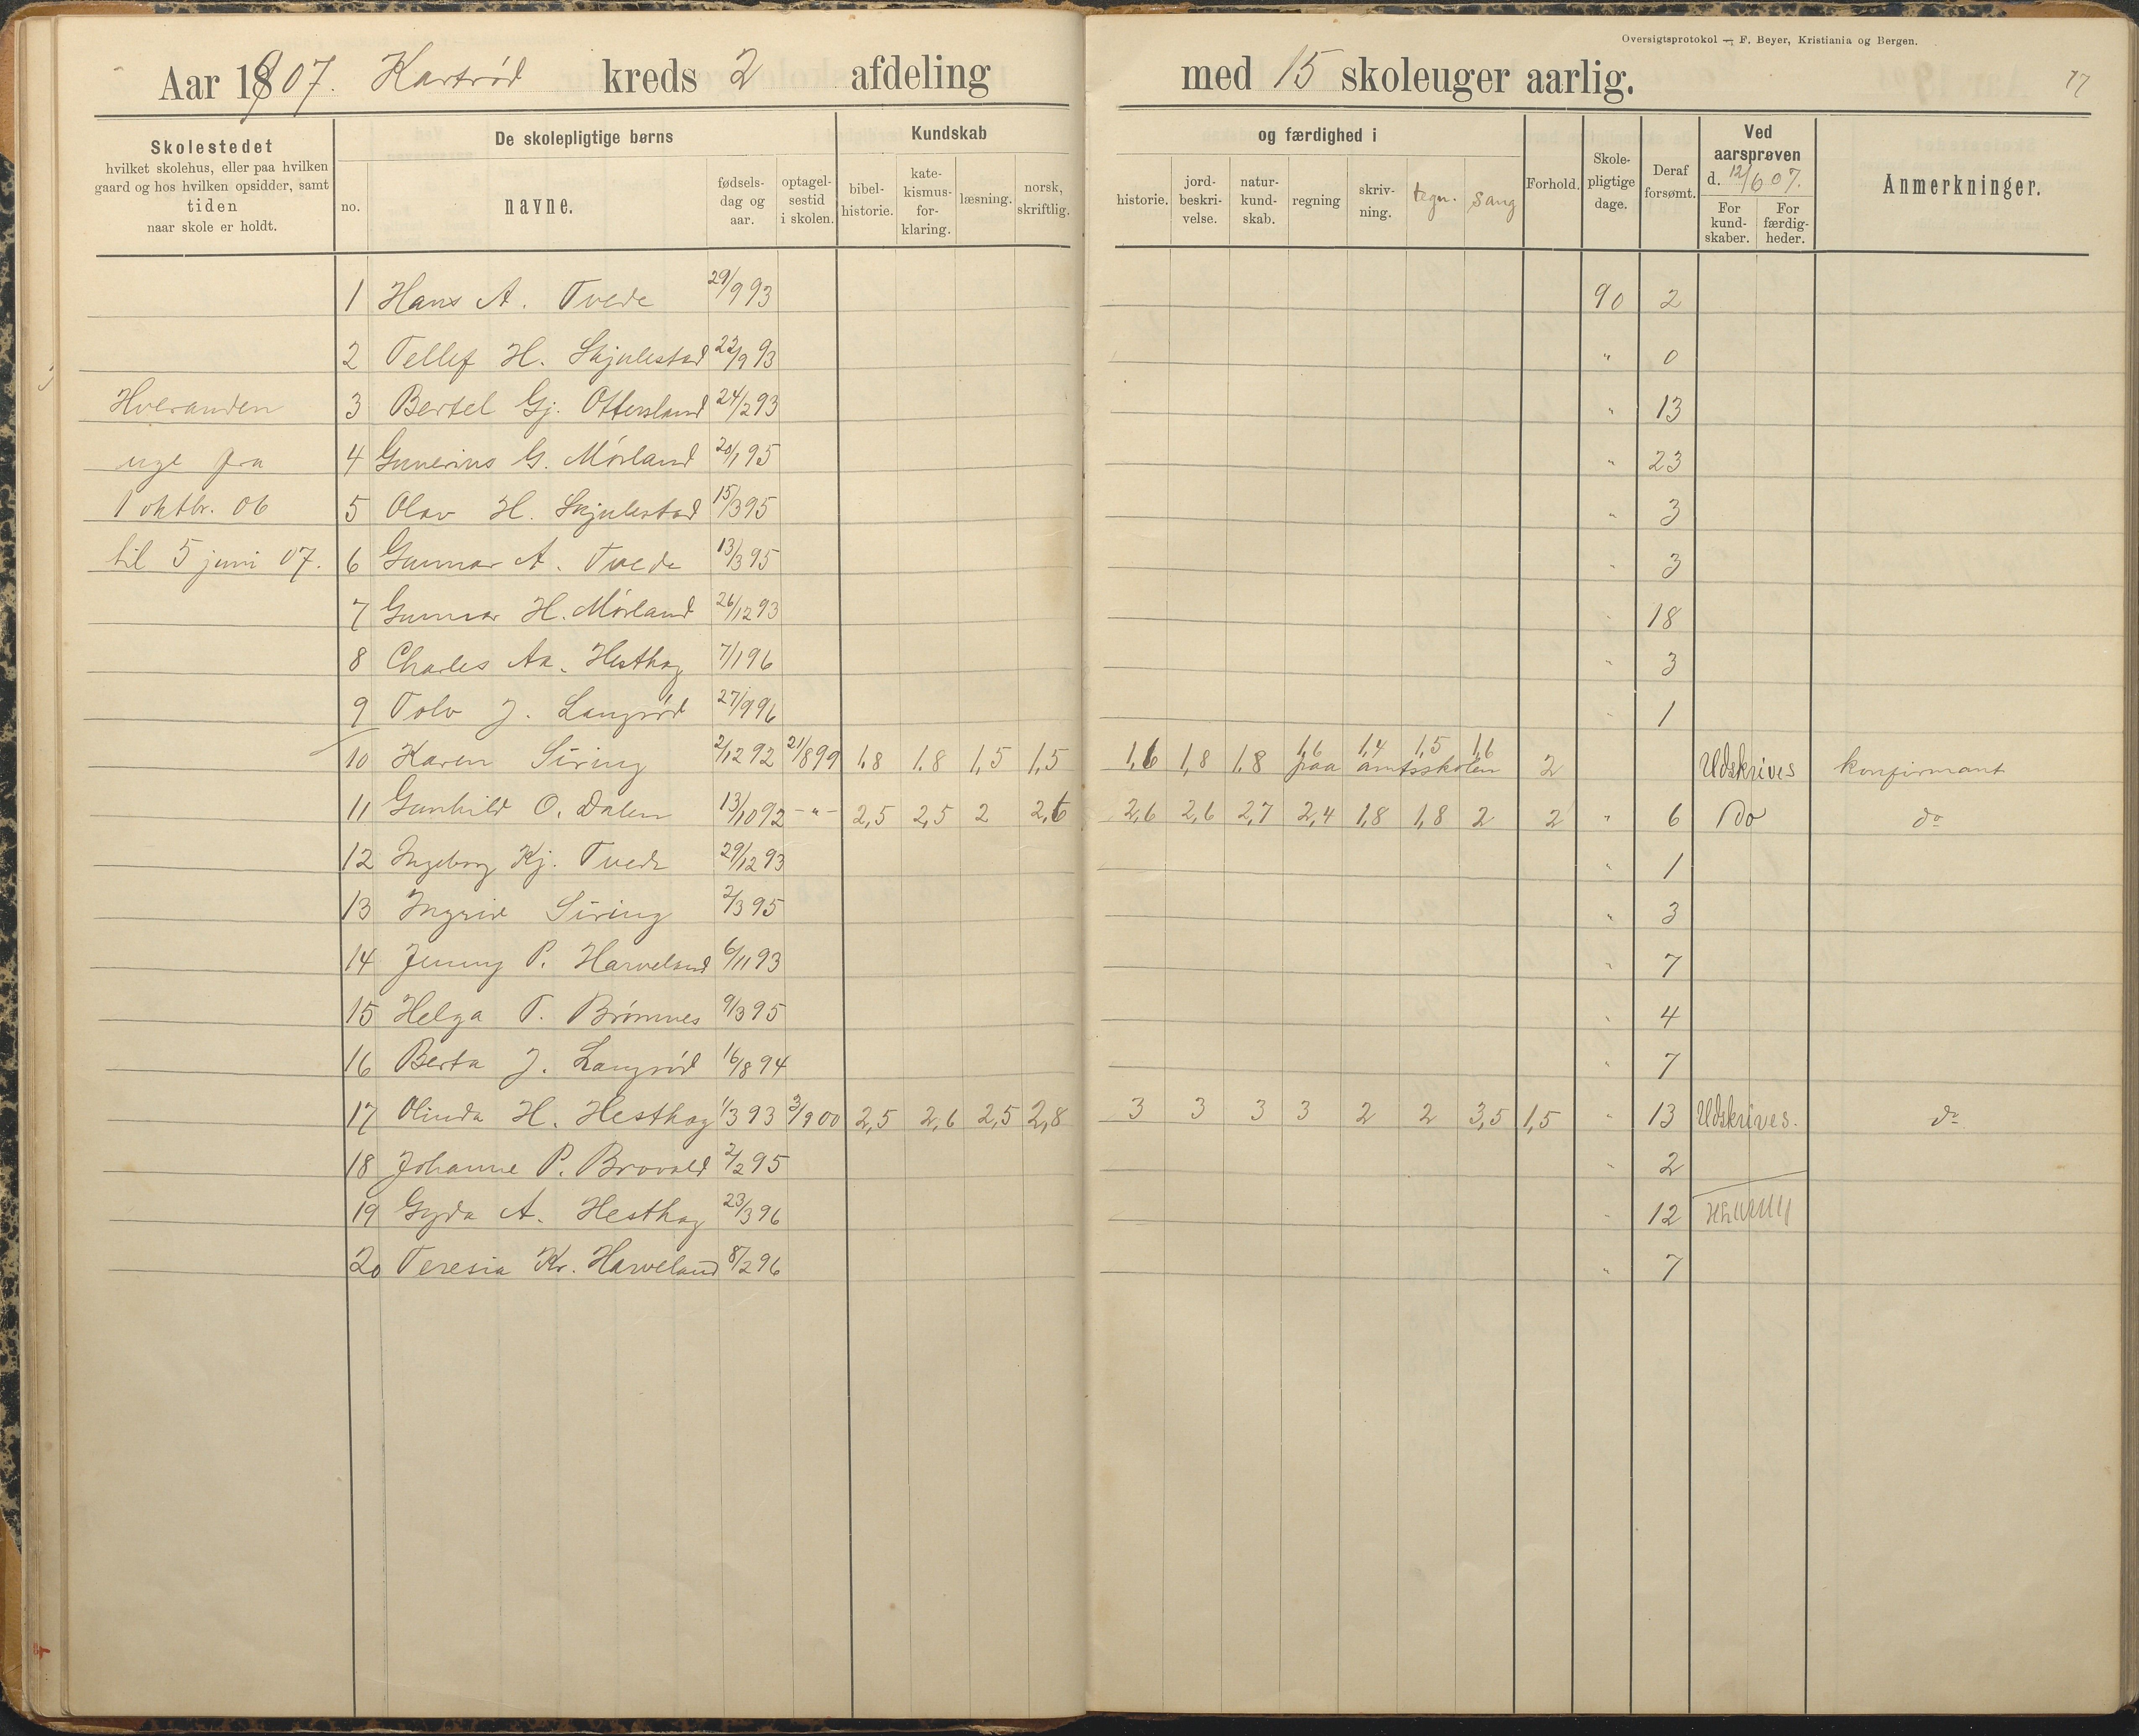 Oversigtsprotokol — F. Beyer, Kristiania og Bergen.
Aar 1907. Kartrød kreds 2 afdeling med 15 skoleuger aarlig. 17
Skolestedet hvilket skolehus, eller paa hvilken gaard og hos hvilken opsidder, samt tiden naar skole er holdt.
De skolepligtige børns
no. navne. fødselsdag og aar. optagelsestid i skolen.
Kundskab og færdighed i
bibelhistorie. katekismusforklaring. læsning. norsk, skriftlig. historie. jordbeskrivelse. naturkundskab. regning skrivning. tegn. Sang
Forhold. Skolepligtige dage. Deraf forsømt.
Ved aarsprøven d. 12/6 07.
For kundskaber. For færdigheder.
Anmerkninger.
1 Hans A. Tvede 29/9 93 90 2
2 Tellef H. Skjulestad 22/9 93 " 0
Hveranden 3 Bertel Gj. Ottersland 24/2 93 " 13
uge fra 4 Gunerius G. Mørland 20/1 95 " 23
1 oktbr. 06 5 Olav H. Skjulestad 15/3 95 " 3
til 5 juni 07. 6 Gunnar A. Tvede 13/3 95 " 3
7 Gunnar H. Mørland 26/12 93 " 18
8 Charles Aa. Hesthag 7/1 96 " 3
9 Tolv J. Langrød 27/9 96 " 1
10 Karen Siring 2/12 92 21/8 99 1,8 1.8 1,5 1,5 1,6 1,8 1.8 1,6 1,4 1,5 1,6 paa amtsskolen 2 Udskrives konfirmant
11 Gunhild O. Dalen 13/10 92 -"- 2,5 2,5 2 2,6 2,6 2,6 2,7 2,4 1,8 1,8 2 2 " 6 Do do
12 Ingeborg Kj. Tvede 29/12 93 " 1
13 Ingrid Siring 2/3 95 " 3
14 Jenny P. Harveland 6/11 93 " 7
15 Helga T. Brømnes 9/3 95 " 4
16 Berta J. Langrød 16/8 94 " 7
17 Olinda H. Hesthag 1/3 93 3/9 00 2,5 2,6 2,5 2,8 3 3 3 3 2 2 3,5 1,5 " 13 Udskrives. do
18 Johanne P. Brovold 2/2 95 " 2
19 Gyda A. Hesthag 23/3 96 " 12
20 Teresia Kr. Harveland 8/2 96 " 7